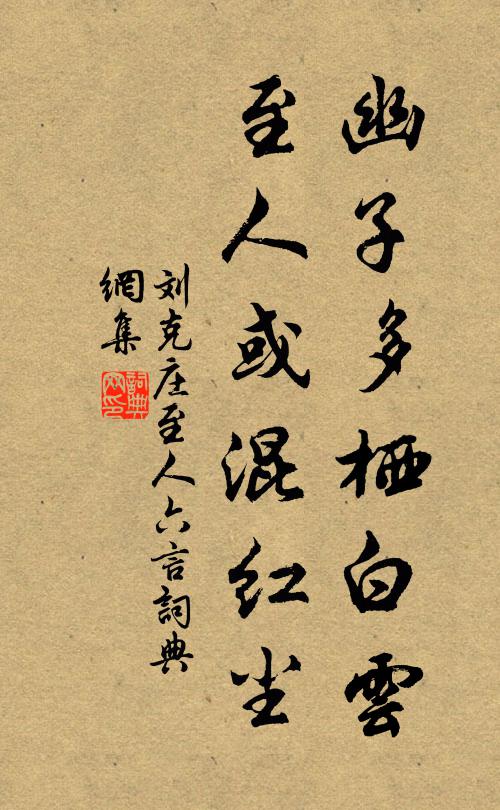 幽子多栖白雲
至人或混红尘
刘克庄至人六言詞典
網集
詞典
网印